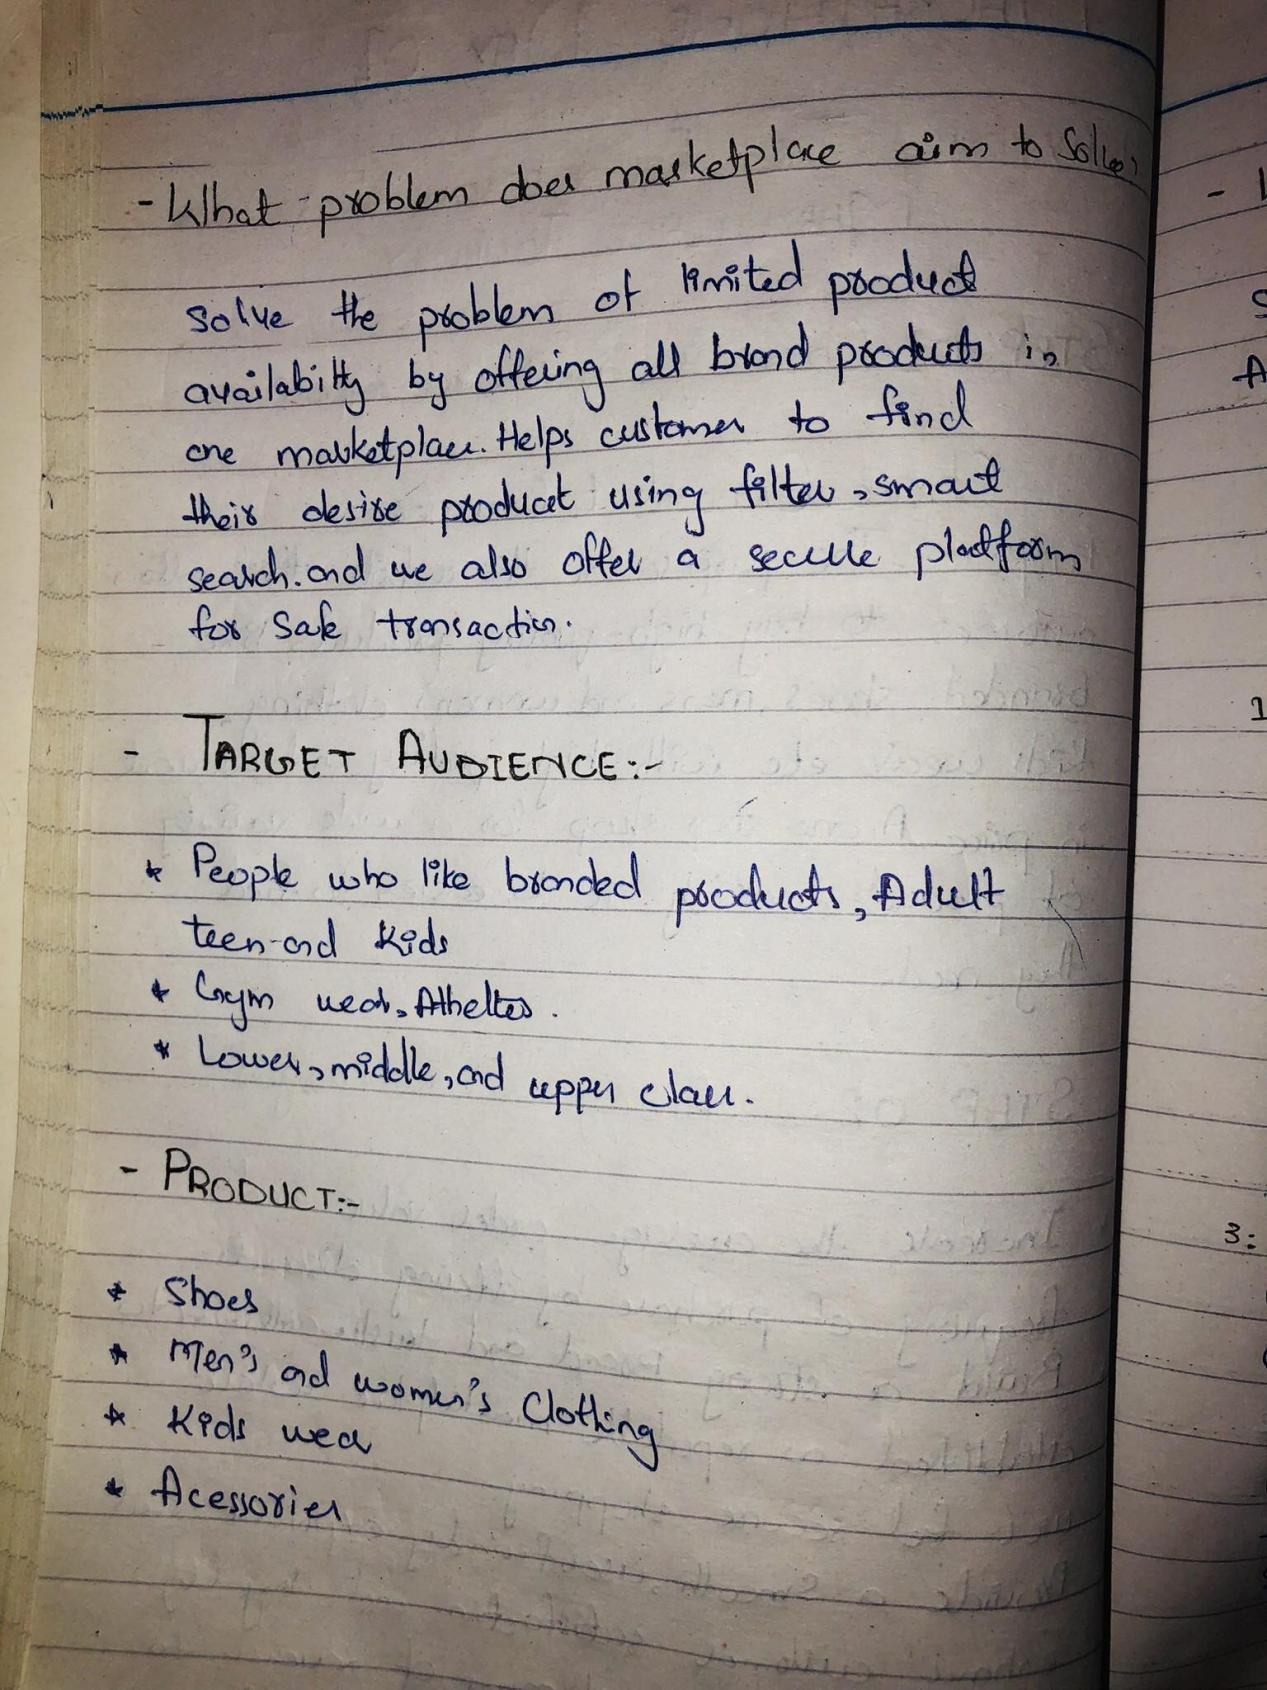 - What problem does marketplace aim to Solve?
solve the problem of limited product
availability by offering all brand products in
one marketplace. Helps customer to find
their desire product using filter, smart
search. and we also offer a secure platform
for safe transaction.
- TARGET AUDIENCE:-
* People who like branded products, Adult
teen and Kids
* Gym wear, Atheltes.
* Lower, middle, and upper class.
- PRODUCT:-
* Shoes
* Men's and women's Clothing
* Kids wear
* Acessories
1
3: